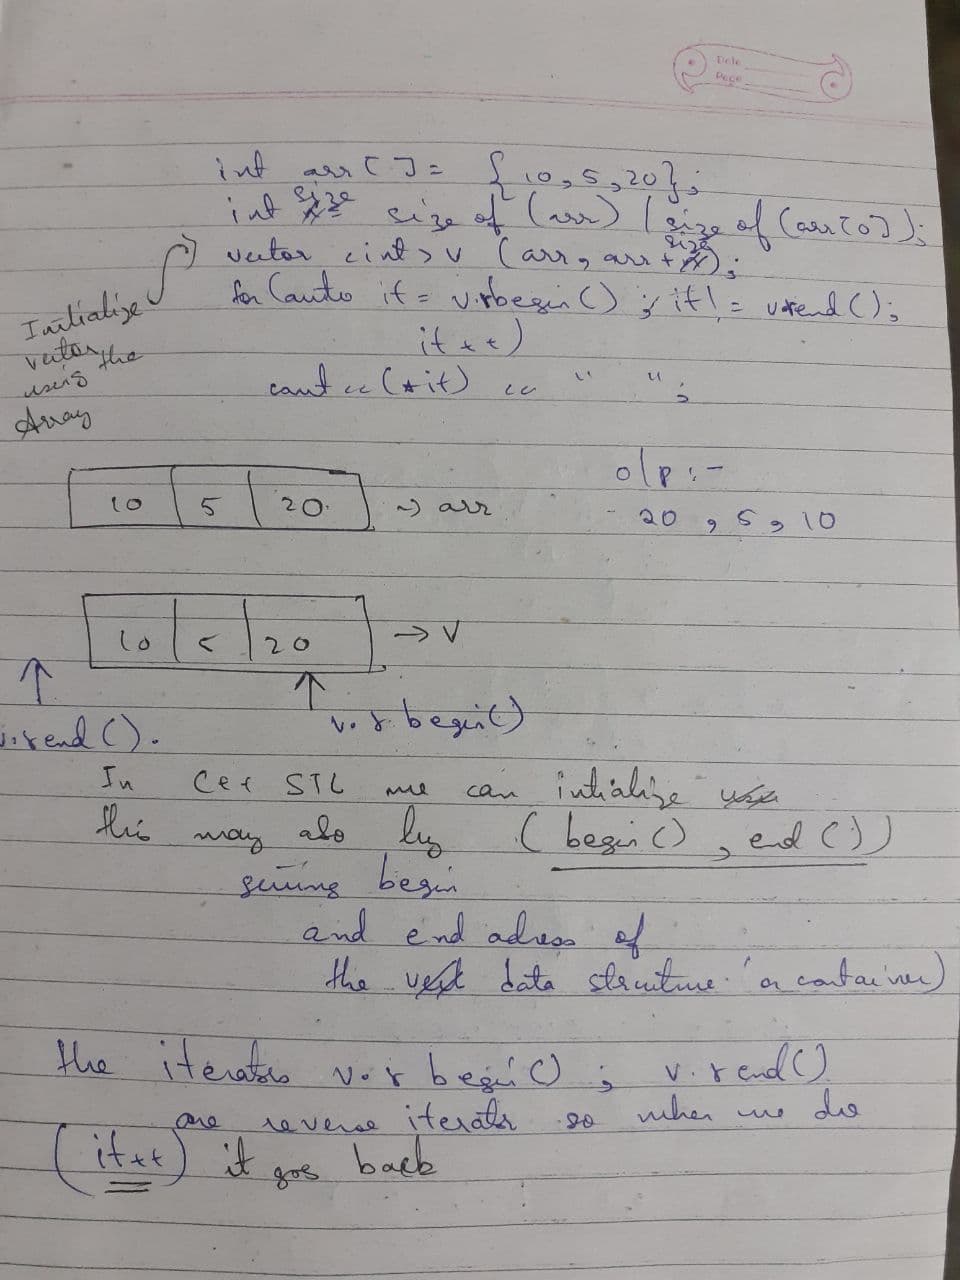 Date
Page
int arr[] = {10, 5, 20};
int size = size of (arr) / size of (arr[0]);
vector <int> v (arr, arr + size);
for (auto it = v.rbegin() ; it != v.rend();
it++)
cout << (*it) << " " ;
Initialize
vector
using the
Array
o/p :-
10 5 20 → arr
20 , 5 , 10
10 5 20 → v
v.rend(). v.rbegin()
In C++ STL we can intialize
this way also by ( begin() , end ())
giving begin
and end adress of
the data structure (or container)
the iterators v.rbegin() ; v.rend()
are reverse iterator so when we do
(it++) it goes back